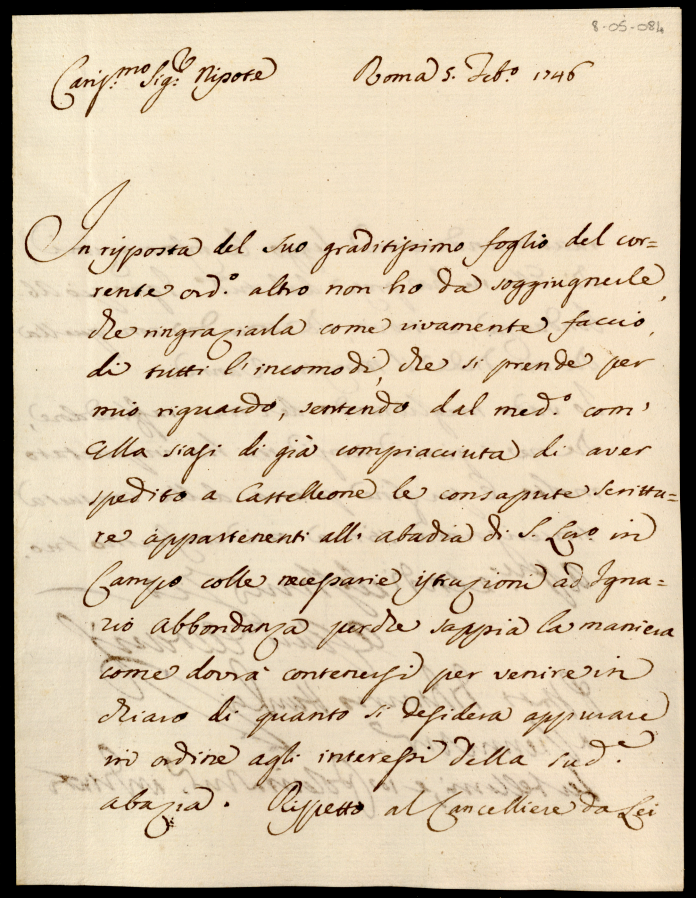 8-05-084
Cariss.mo Sig.r Nipote Roma 5. Feb.o 1746
In risposta del suo graditissimo foglio del cor=
rente ord.o altro non ho da soggiugnerle,
che ringraziarla come vivamente faccio,
di tutti l'incomodi, che si prende per
mio riguardo, sentendo dal med.o com'
Ella siasi di già compiacciuta di aver
spedito a Castelleone le consapute scrittu=
re appartenenti all' abadia di S. Lor.o in
Campo colle necessarie istruzioni ad Igna=
zio Abbondanza perche sappia la maniera
come dovrà contenersi per venire in
chiaro di quanto si desidera appurare
in ordine agli interessi della sud.a
abazia. Rispetto al Cancelliere da Lei